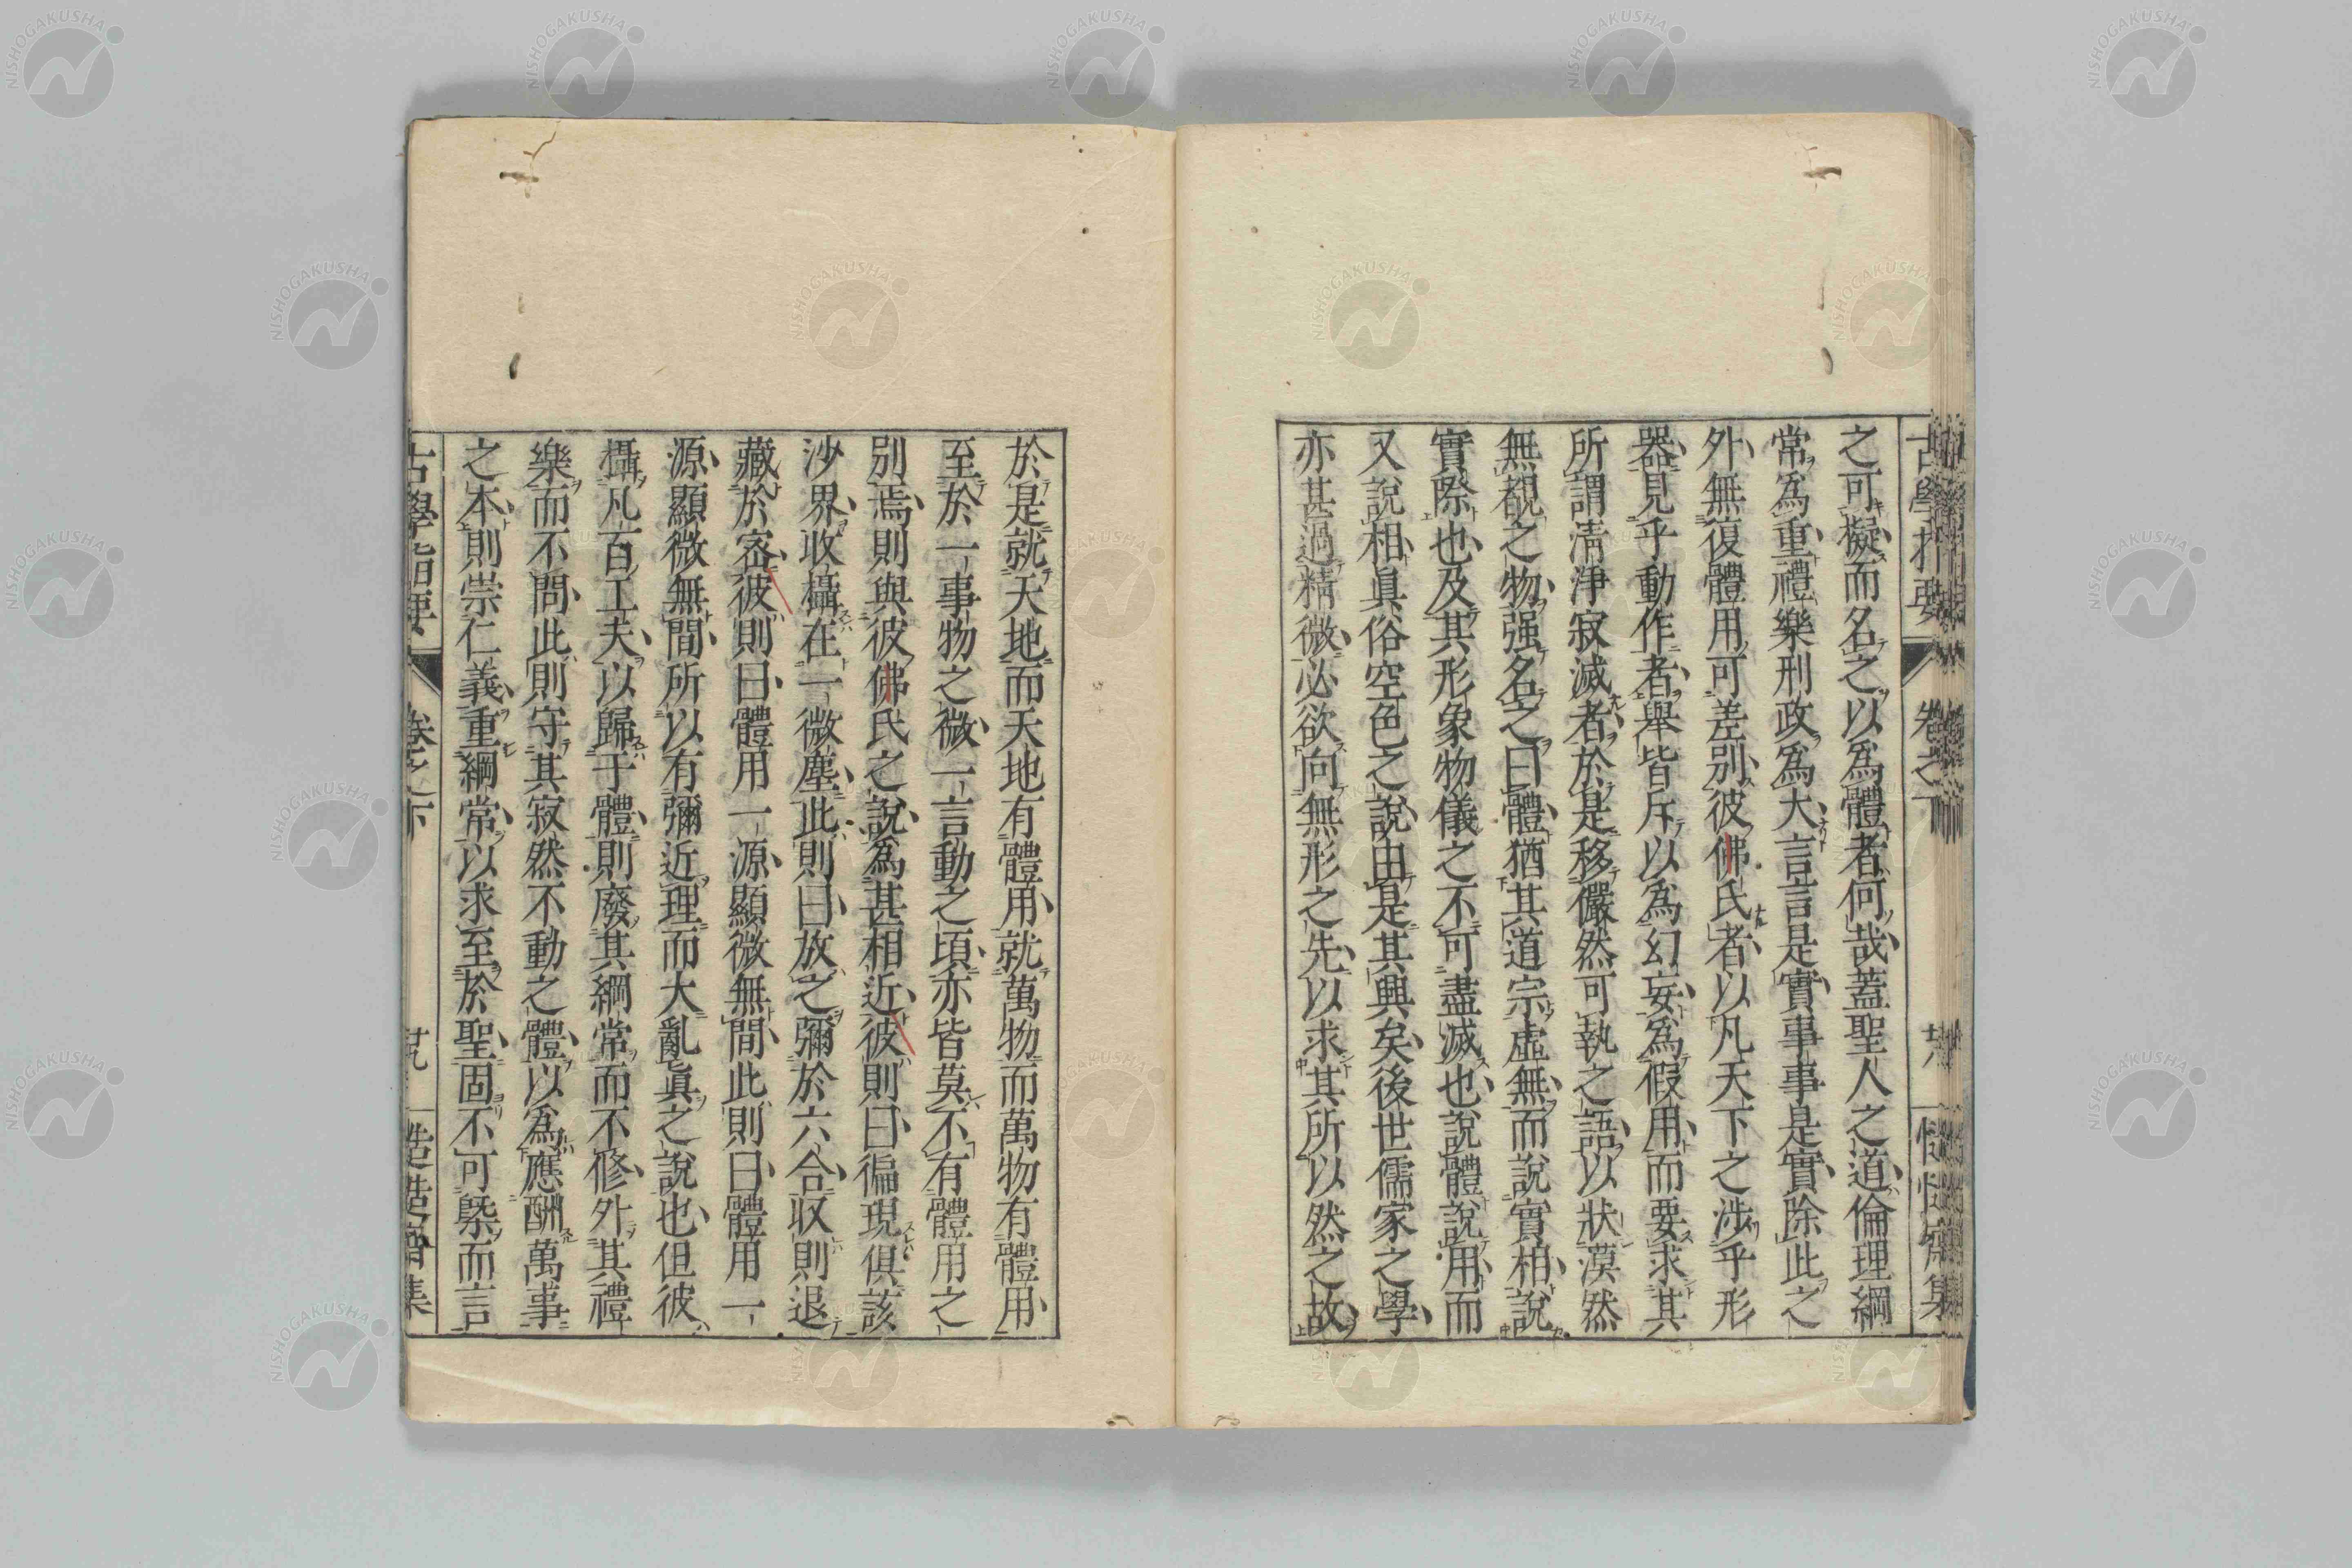 之可擬而名之以爲體者何哉蓋聖人之道倫理綱
常爲重禮樂刑政爲大言言是實事事是實除此之
外無復體用可差別彼佛氏者以凡天下之涉乎形
器見乎動作者舉皆斥以爲幻妄爲假用而要求其
所謂淸淨寂滅者於是移儼然可執之語以狀漠然
無覩之物强名之曰體猶其道宗虛無而說實相說
實際也及其形象物儀之不可盡滅也說體說用而
又說相眞俗空色之說由是其興矣後世儒家之學
亦甚過精微必欲向無形之先以求其所以然之故
於是就天地而天地有體用就萬物而萬物有體用
至於一事物之微一言動之頃亦皆莫不有體用之
別焉則與彼佛氏之說爲甚相近彼則曰徧現俱該
沙界收攝在一微塵此則曰放之彌於六合収則退
藏於密彼則曰體用一源顯微無間此則曰體用一
源顯微無間所以有彌近理而大亂眞之說也但彼
攝凡百工夫以歸于體則廢其綱常而不修外其禮
樂而不問此則守其寂然不動之體以爲應酬萬事
之本則崇仁義重綱常以求至於聖固不可槩而言
古學指要 卷之下
NISHOGAKUSHA